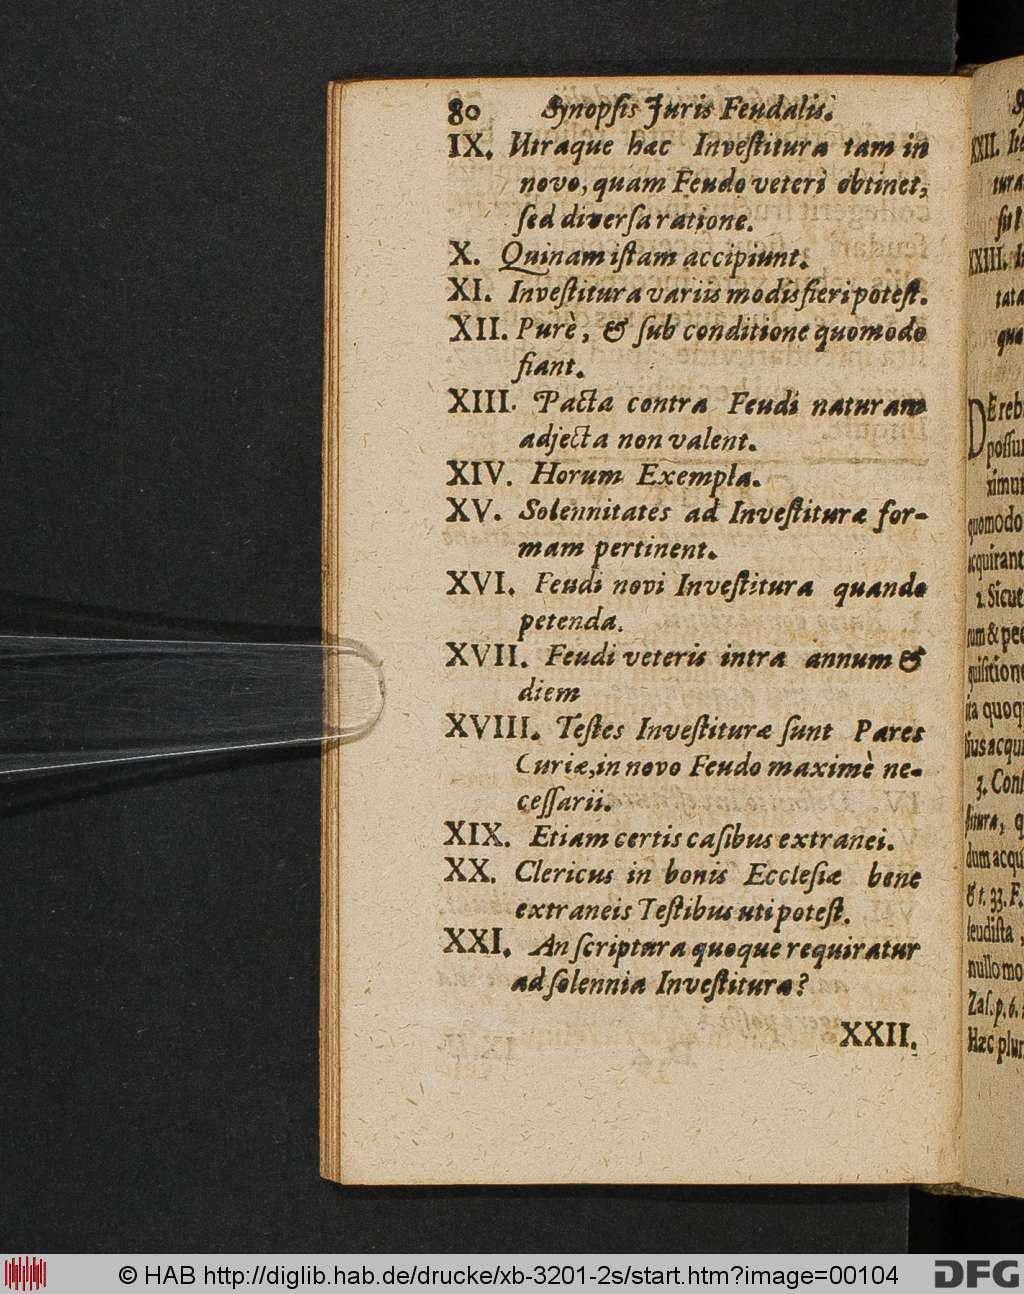 80 Synopsis Juris Feudalis.
IX. Utraque hæc Investitura tam in
novo, quam Feudo veteri obtinet,
sed diversa ratione.
X. Quinam istam accipiunt.
XI. Investitura variis modis fieri potest.
XII. Purè, & sub conditione quomodo
fiant.
XIII. Pacta contra Feudi naturam
adjecta non valent.
XIV. Horum Exempla.
XV. Solennitates ad Investituræ for-
mam pertinent.
XVI. Feudi novi Investitura quando
petenda.
XVII. Feudi veteris intra annum &
diem
XVIII. Testes Investituræ sunt Pares
Curiæ, in novo Feudo maximè ne-
cessarii.
XIX. Etiam certis casibus extranei.
XX. Clericus in bonis Ecclesiæ bene
extraneis Testibus uti potest.
XXI. An scriptura quoque requiratur
ad solennia Investituræ?
XXII.
XXII.
XXIII.
quomodo
acquirant
1. Sicut
ita quoq
3. Con
& t. 33. F.
feudista,
nullo mo
Zas. p. 6.
Hæc plur
© HAB http://diglib.hab.de/drucke/xb-3201-2s/start.htm?image=00104
DFG